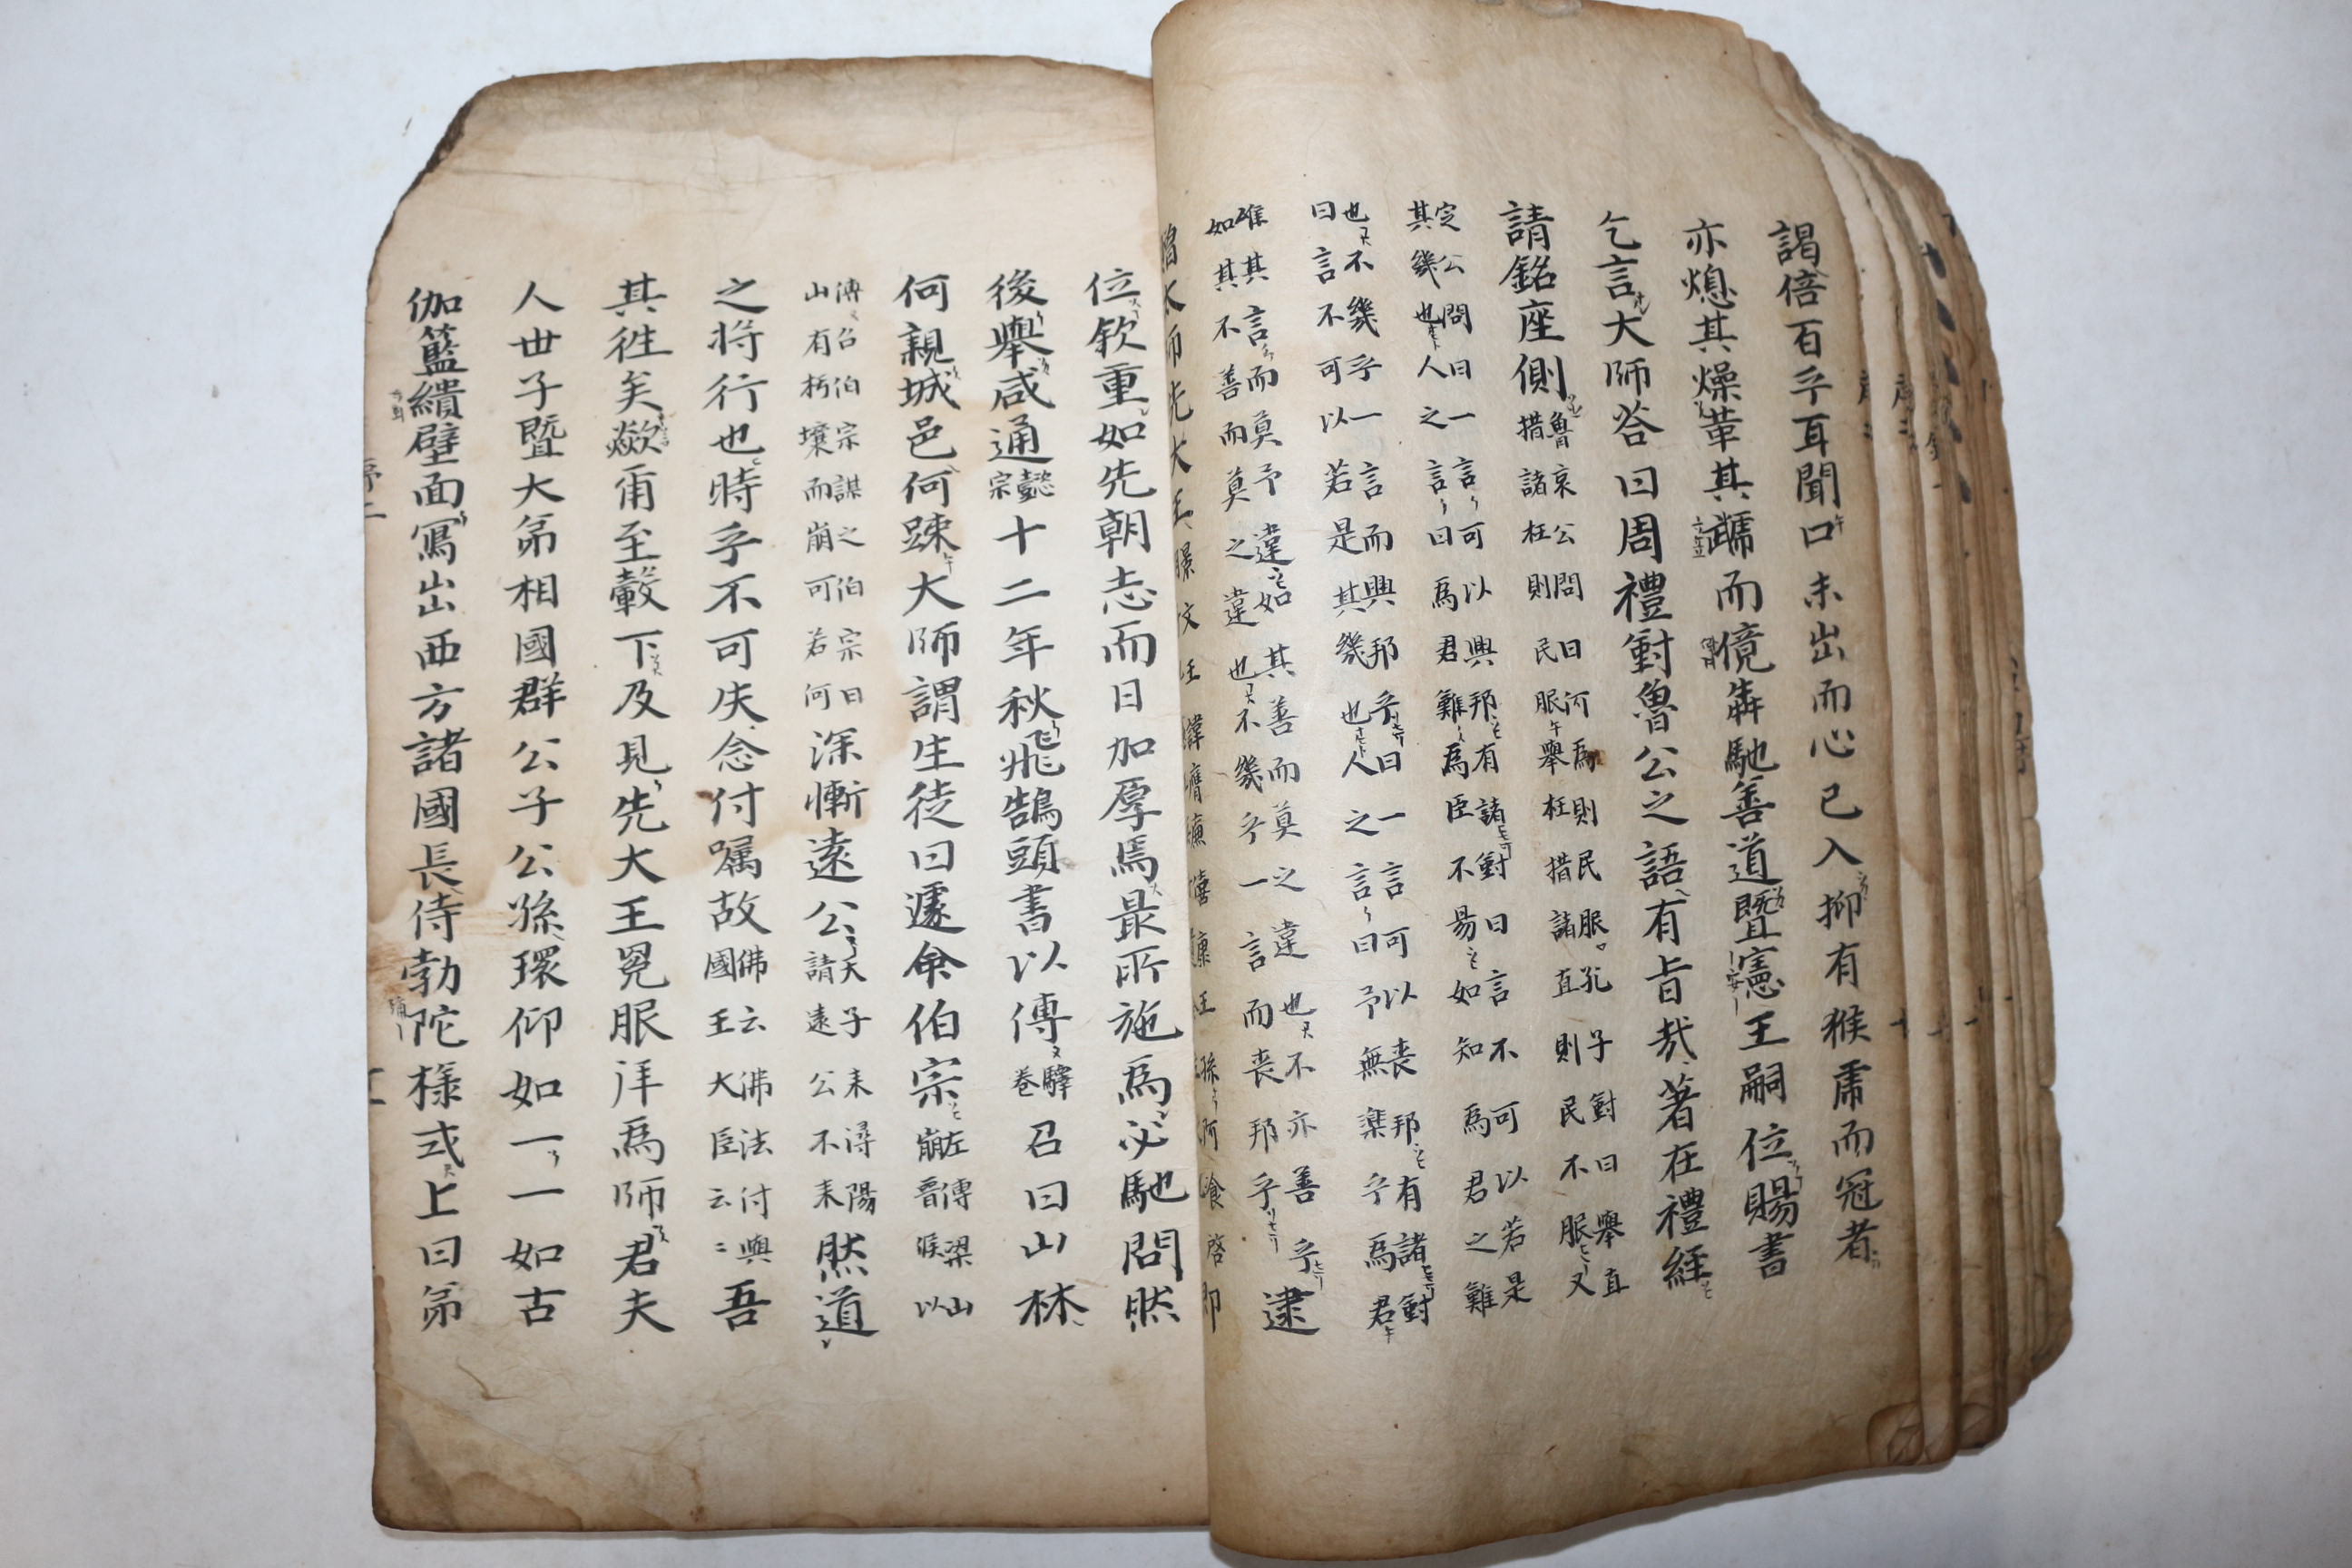 謁倍百乎耳聞口未出而心已入抑有猴虎而冠者
亦熄其燥革其而傹犇馳善道曁憲王嗣位賜書
乞言大師答曰周禮對魯公之語有旨哉著在禮經
請銘座側魯哀公問曰河爲則民服孔子對曰舉直
措諸枉則民服舉枉措諸直則民不服又
定公問曰一言可以興邦有諸對曰言不可以若是
其幾也人之言曰爲君難爲臣不易如知爲君之難
也不幾乎一言而興邦乎曰一言可以喪邦有諸對
曰言不可以若是其幾也人之言曰予無樂乎爲君
唯其言而莫予違如其善而莫之違也不亦善乎
如其不善而莫之違也不幾乎一言而喪邦乎逮
先大王文王諱膺廉康王孫阿飡啓即
位欽重如先朝志而日加厚焉最所施爲必馳問然
後舉咸通懿宗十二年秋飛鵠頭書以傳驛卷召曰山林
何親城邑何踈大師謂生徒曰遽命伯宗左傳梁山
崩晋侯以
傳召伯宗謀之伯宗曰
山有朽壤而崩可若何深慚遠公天子未潯陽
請遠公不来然道
之將行也時乎不可失念付囑故佛云佛法付與
國王大臣云〻吾
其徃矣歘甭至轂下及見先大王冕服拝爲師君夫
人世子曁大弟相國群公子公孫環仰如一一如古
伽籃繢壁面寫出西方諸國長侍勃陀樣式上曰弟